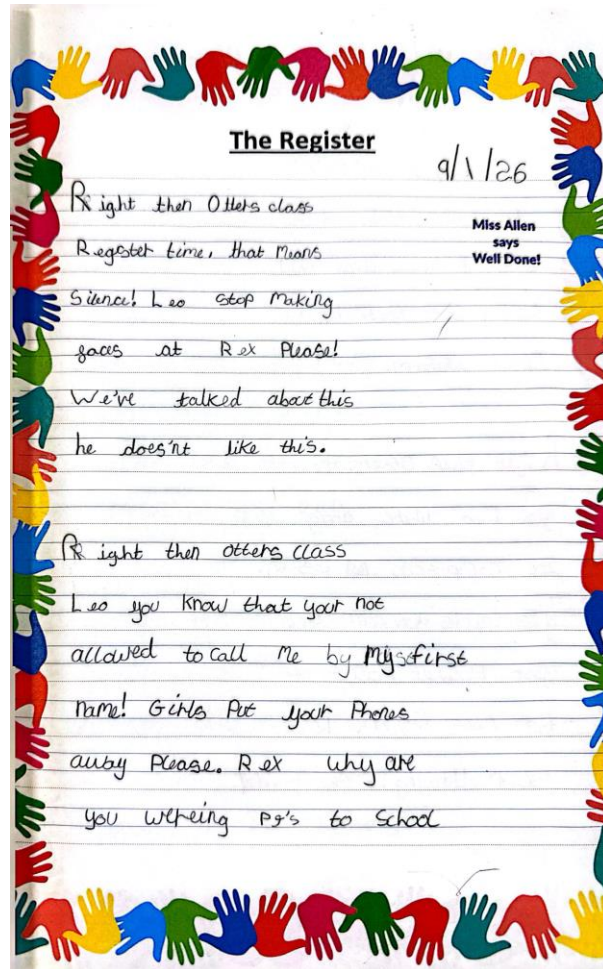 The Register
9/1/26
Right then Otters class
Miss Allen
says
Well Done!
Regster time, that means
Silence! Leo stop making
faces at Rex Please!
We've talked about this
he does'nt like this.
Right then otters class
Leo you know that your not
allowed to call me by my first
name! Girls Put your Phones
away Please. Rex why are
you wereing PJ's to School